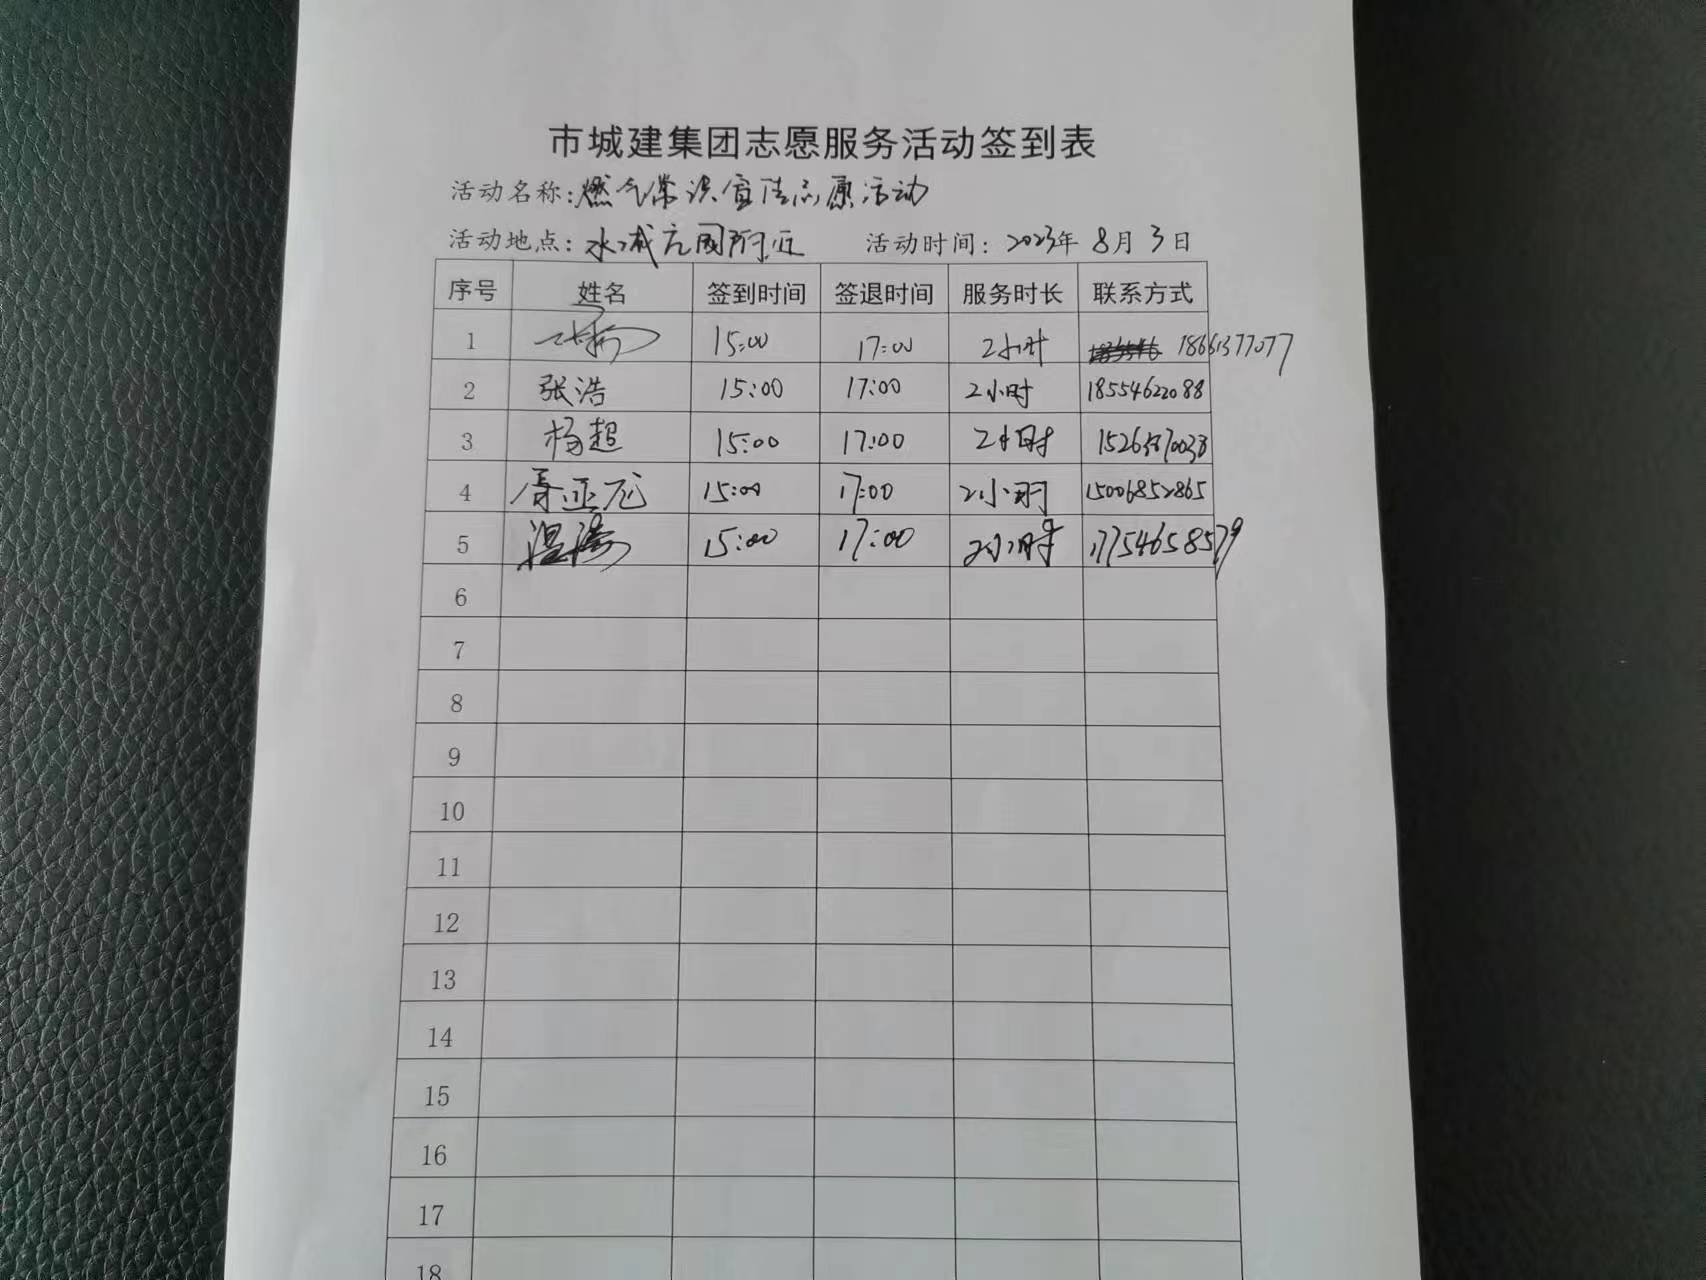 市城建集团志愿服务活动签到表
活动名称:燃气常识宣传志愿活动
活动地点:水城广园附近 活动时间:2023年8月3日
序号 姓名 签到时间 签退时间 服务时长 联系方式
1 15:00 17:00 2小时 18661377077
2 张浩 15:00 17:00 2小时 18554622088
3 杨超 15:00 17:00 2小时
4 胥亚龙 15:00 17:00 2小时 15006852865
5 温涛 15:00 17:00 2小时 17754658579
6
7
8
9
10
11
12
13
14
15
16
17
18